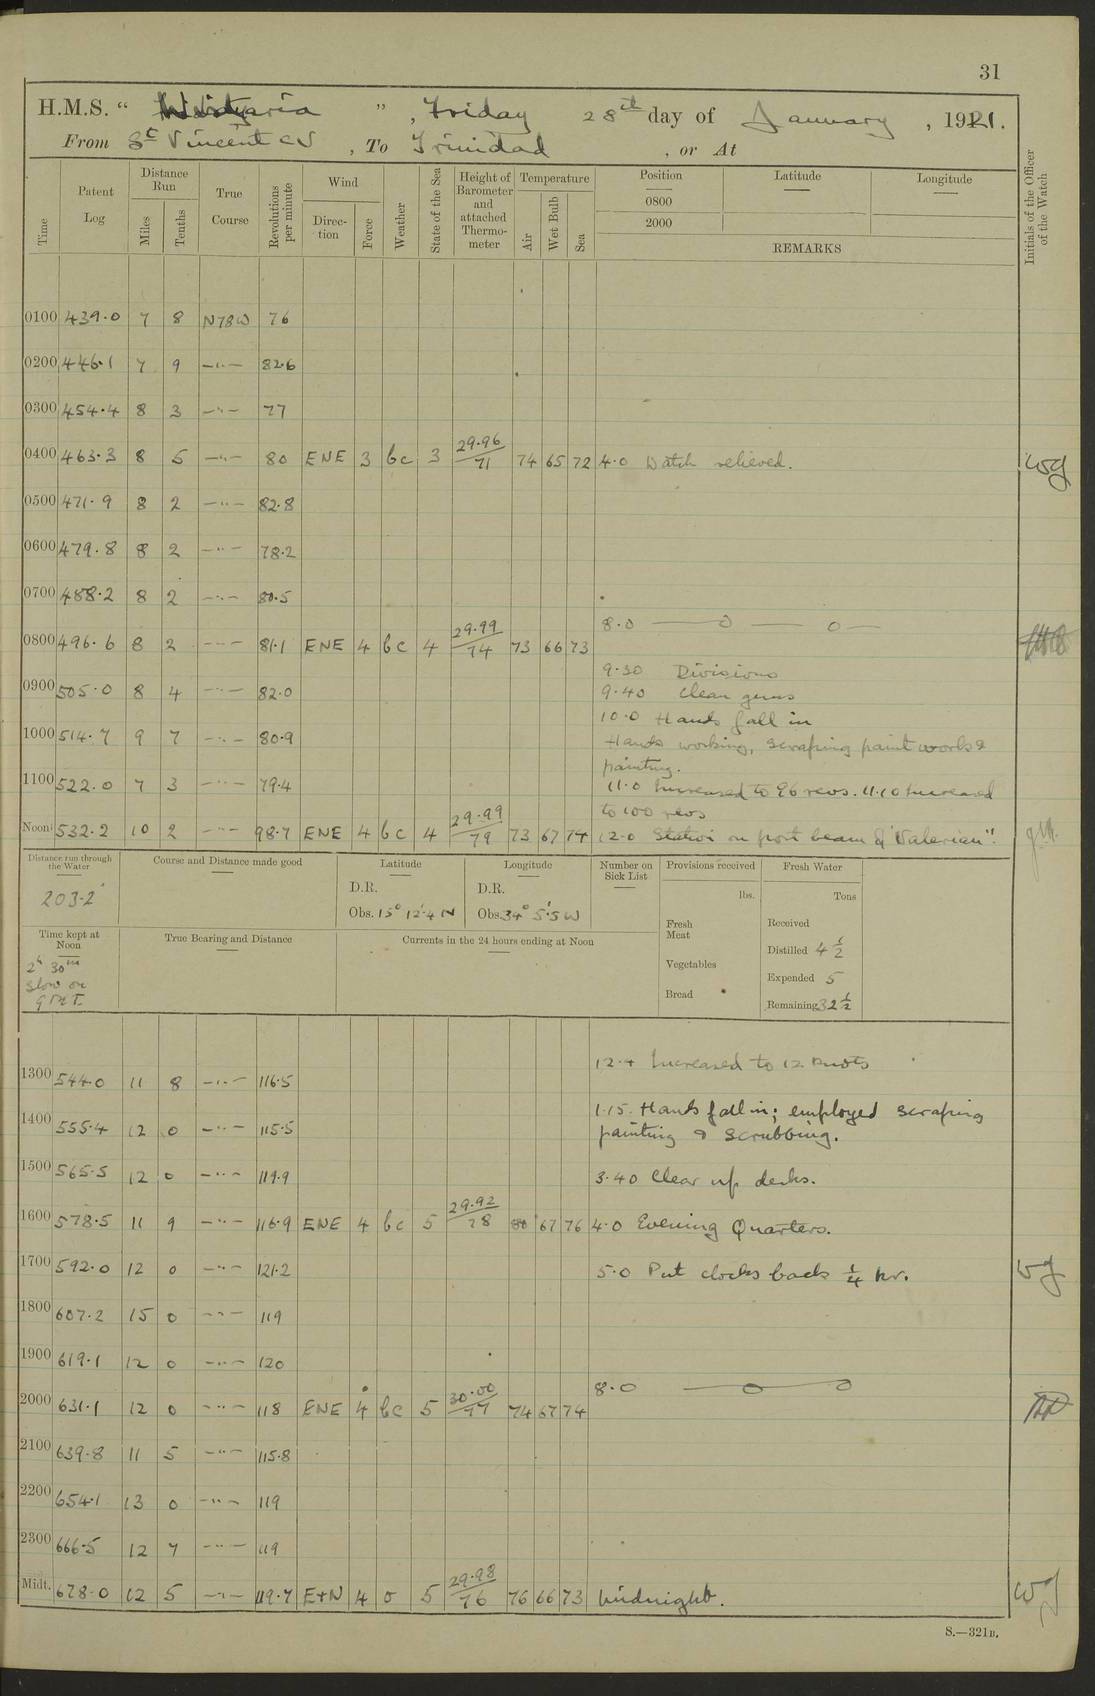 31
H.M.S. " ", Friday 28th day of January, 1921.
From St Vincent CV, To Trinidad, or At
Time
Patent Log
Distance Run
Miles
Tenths
True Course
Revolutions per minute
Wind
Direction
Force
Weather
State of the Sea
Height of Barometer and attached Thermometer
Temperature
Air
Wet Bulb
Sea
Position
Latitude
Longitude
0800
2000
REMARKS
Initials of the Officer of the Watch
0100 439.0 7 8 N78W 76
0200 446.1 7 9 —"— 82.6
0300 454.4 8 3 —"— 77
0400 463.3 8 5 —"— 80 ENE 3 bc 3 29.96/71 74 65 72 4.0 Watch relieved. WG
0500 471.9 8 2 —"— 82.8
0600 479.8 8 2 —"— 78.2
0700 488.2 8 2 —"— 80.5
8.0 — o — o —
0800 496.6 8 2 —"— 81.1 ENE 4 bc 4 29.99/74 73 66 73
9.30 Divisions
0900 505.0 8 4 —"— 82.0 9.40 Clean guns
10.0 Hands fall in
1000 514.7 9 7 —"— 80.9 Hands working, scraping paint works &
painting.
1100 522.0 7 3 —"— 79.4 11.0 Increased to 96 revs. 11.10 Increased
to 100 revs
Noon 532.2 10 2 —"— 98.7 ENE 4 bc 4 29.99/79 73 67 74 12.0 Station on port beam of "Valerian".
Distance run through the Water
203.2
Course and Distance made good
Latitude
D.R.
Obs. 15° 12'.4 N
Longitude
D.R.
Obs. 34° 5'.5 W
Number on Sick List
Provisions received
lbs.
Fresh Meat
Vegetables
Bread
Fresh Water
Tons
Received
Distilled 4 1/2
Expended 5
Remaining 32 1/2
Time kept at Noon
2h 30m
slow on
GMT.
True Bearing and Distance
Currents in the 24 hours ending at Noon
12.4 Increased to 12 knots
1300 544.0 11 8 —"— 116.5
1.15. Hands fall in; employed scraping
1400 555.4 12 0 —"— 115.5 painting & scrubbing.
1500 565.5 12 0 —"— 119.9 3.40 Clear up decks.
1600 578.5 11 9 —"— 116.9 ENE 4 bc 5 29.92/78 67 76 4.0 Evening Quarters.
1700 592.0 12 0 —"— 121.2 5.0 Put clocks back 1/4 hr. WG
1800 607.2 15 0 —"— 119
1900 619.1 12 0 —"— 120
8.0 — o — o
2000 631.1 12 0 —"— 118 ENE 4 bc 5 30.00/77 74 67 74
2100 639.8 11 5 —"— 115.8
2200 654.1 13 0 —"— 119
2300 666.5 12 7 —"— 119
Midt. 678.0 12 5 —"— 119.7 E+N 4 o 5 29.98/76 76 66 73 Midnight. WG
S.—321B.